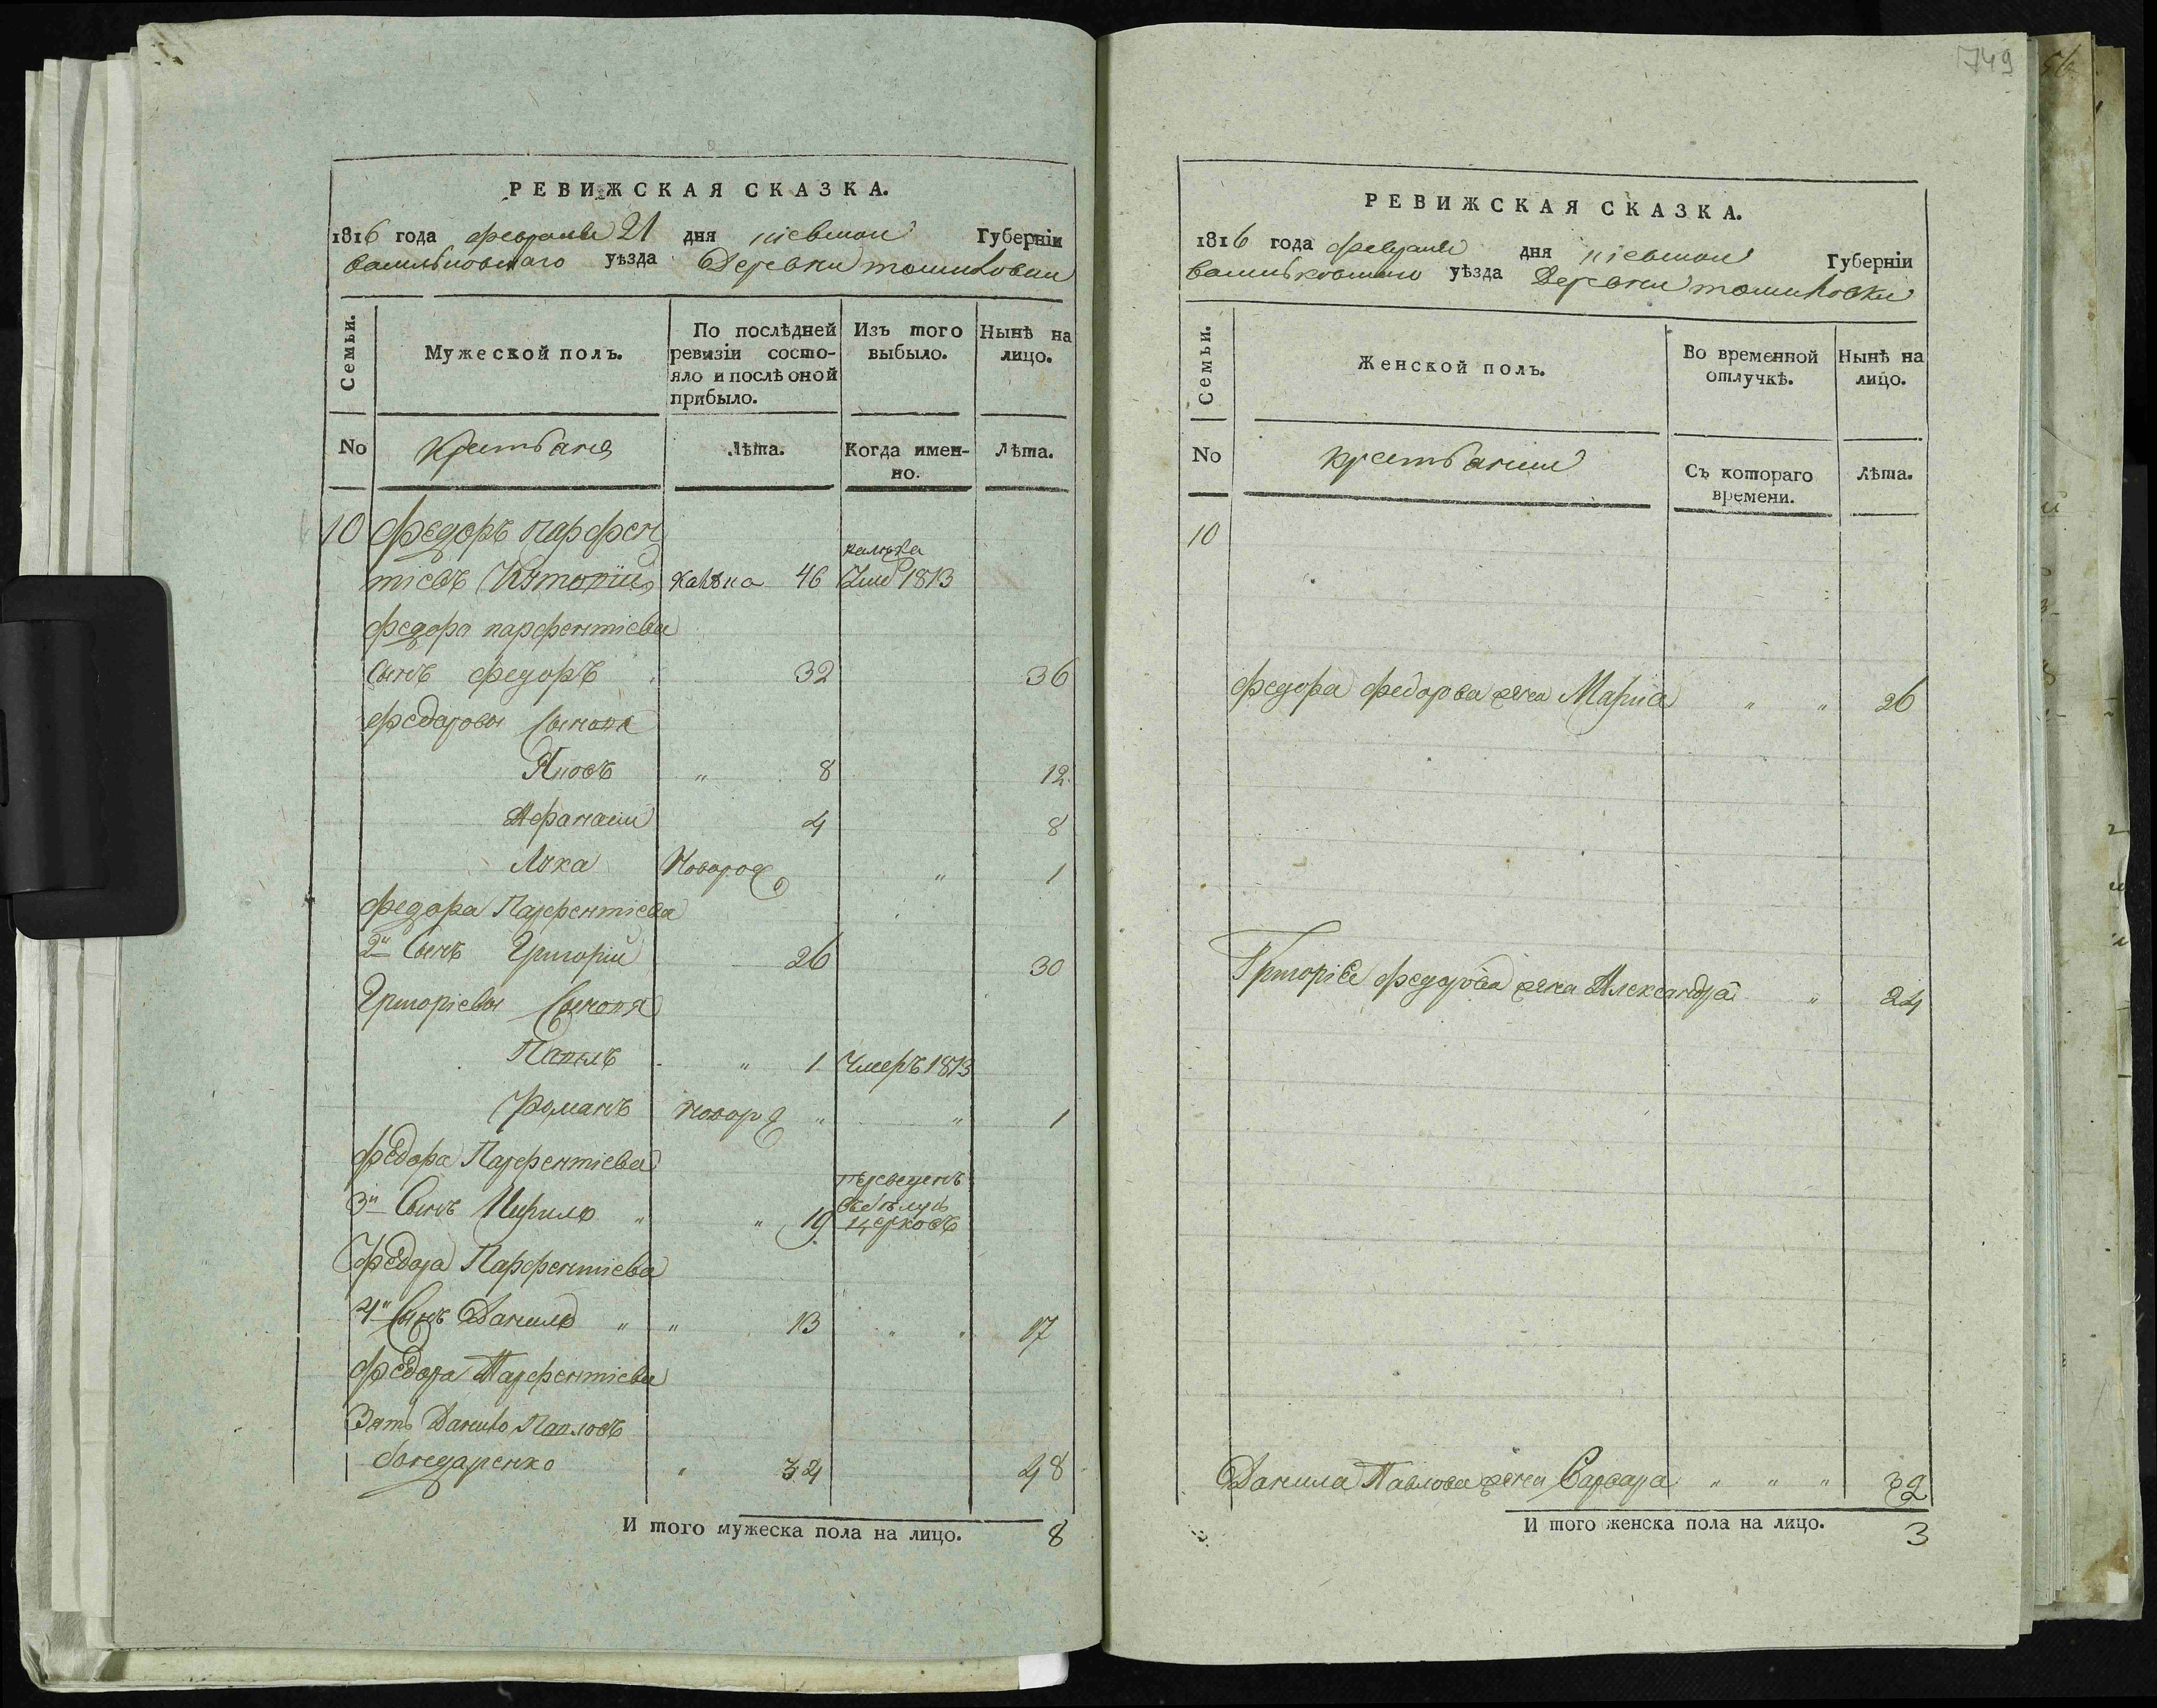 РЕВИЖСКАЯ СКАЗКА.
1816 года февраля 21 дня киевской Губерніи
васильковскаго уѣзда Деревни томиловки
Семьи.
Мужеской полъ.
По послѣдней ревизіи состо-
яло и послѣ оной
прибыло.
Изъ того
выбыло.
Нынѣ на
лицо.
No
Крестьяне
Лѣта.
Когда имен-
но.
Лѣта.
10 Федоръ парфен
тіевъ калѣка 46 1813
федора парфентіева
сынъ федоръ 32 36
федоровы сыновя
Яковъ " 8 12
Афанасии 4 8
Лука Новорож " 1
федора Парфентіева
2й Сынъ Григорій 26 30
Григоріевы Сыновя
Павелъ " 1 Умеръ 1813
Романъ новорож " " 1
федора Парфентіева
3й Сынъ Кирило " " 19 переведенъ
въ бѣлую
церковъ
федора Парфентіева
4й Сынъ Данило " " 13 " " 17
федора Парфентіева
Зять Данило Павловъ
бондаренко " 34 48
И того мужеска пола на лицо. 8
749
РЕВИЖСКАЯ СКАЗКА.
1816 года февраля дня киевской Губерніи
васильковскаго уѣзда Деревни томиловки
Семьи.
Женской полъ.
Во временной
отлучкѣ.
Нынѣ на
лицо.
No
крестьянки
Съ котораго
времени.
Лѣта.
10
федора федорова жена Мариа " " 26
Григоріа федорова жена Александра " 24
Данила Павлова жена Варвара " " " 32
И того женска пола на лицо. 3